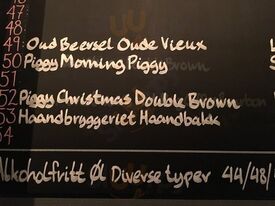 47
48
49: Oud Beersel Oude Vieux
50 Piggy Morning Piggy
51
52 Piggy Christmas Double Brown
53 Haandbryggeriet Haandbakk
54
Alkoholfritt Øl Diverse typer 44/48/